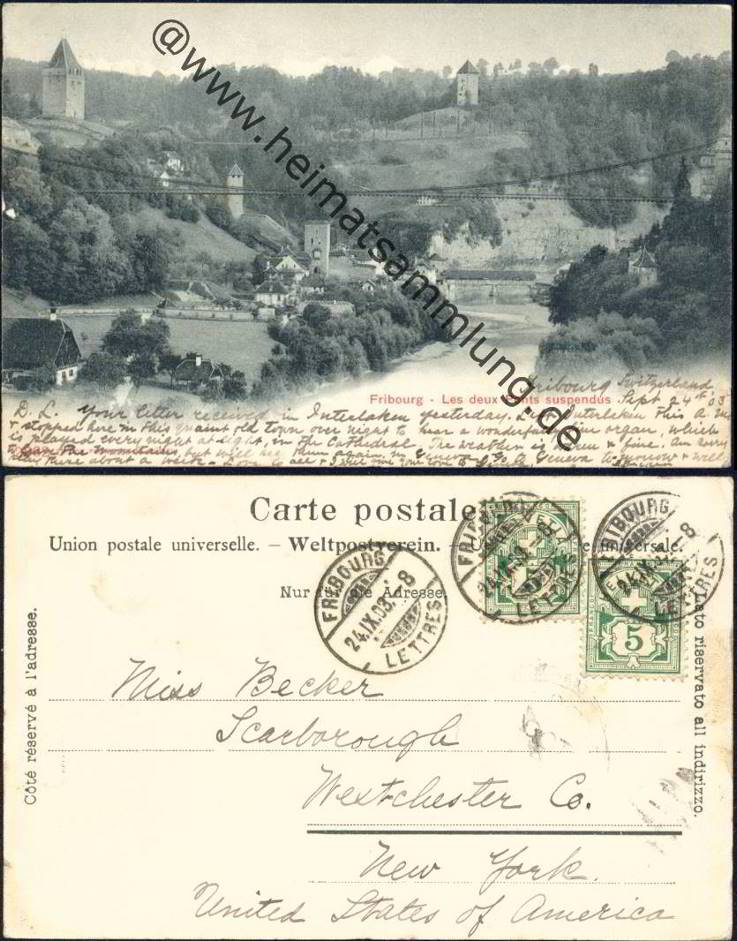 @www.heimatsammlung.de
Fribourg - Les deux ponts suspendus
Fribourg Switzerland
Sept 24th 03
D. L. Your letter received in Interlaken yesterday. Interlaken this A.M.
& stopped here in this quaint old town over night to hear a wonderful fine organ, which
is played every night at eight, in the Cathedral. The weather is & fine. Am sorry
to leave the mountains, but will see them again in Geneva. Go to Geneva tomorrow & will
be there about a week. Love to all &
Carte postale.
Union postale universelle. – Weltpostverein. – universale.
Nur für die Adresse.
FRIBOURG
24.IX.03. – 8
LETTRES
FRIBOURG
24.IX.03. – 8
LETTRES
FRIBOURG
24.IX.03. – 8
LETTRES
5
Côté réservé à l'adresse.
Lato riservato all indirizzo.
Miss Becker
Scarborough
Westchester Co.
New York.
United States of America